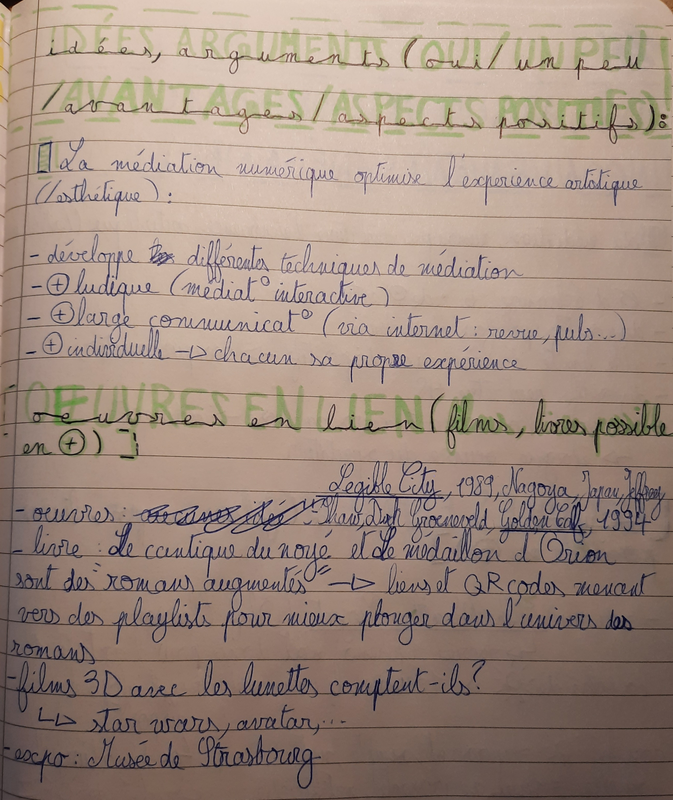 idées, arguments (oui/un peu
/avantages/aspects positifs):
La médiation numérique optimise l'experience artistique
(/esthétique):
- développe différentes techniques de médiation
- ⊕ ludique (médiat° interactive)
- ⊕ large communicat° (via internet: revue, pubs...)
- ⊕ individuelle → chacun sa propre expérience
oeuvres en lien (films, livres possible
en ⊕)
Legible City, 1989, Nagoya, Japan, Jeffrey
- oeuvres: Shaw, Dirk Groeneveld, Golden Calf, 1994
- livre: Le cantique du noyé et Le médaillon d'Orion
sont des "romans augmentés" → liens et QR codes menant
vers des playlists pour mieux plonger dans l'univers des
romans
- films 3D avec les lunettes comptent-ils?
↳ star wars, avatar,...
- expo: Musée de Strasbourg